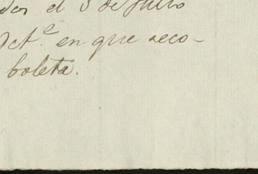 el 5 de Julio
Oct.e en que reco-
boleta.